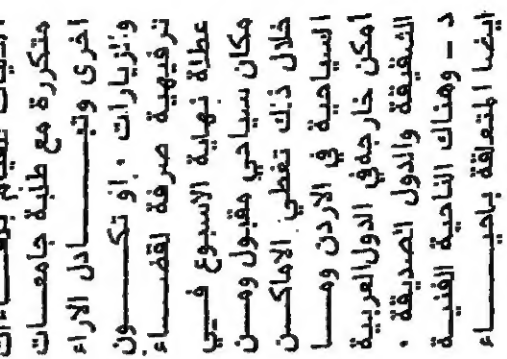 متكررة مع طلبة جامعـات
اخرى وتبـــــادل الاراء
والزيارات . او تكـــــون
ترفيهية صرفة لقضـــاء
عطلة نهاية الاسبوع فـــي
مكان سياحي مقبول ومـــن
خلال ذلك تغطي الاماكـــن
السياحية في الاردن ومـــا
امكن خارجه في الدول العربية
الشقيقة والدول الصديقة .
د - وهناك الناحية الفنيـــة
ايضا المتعلقة باحيـــــاء